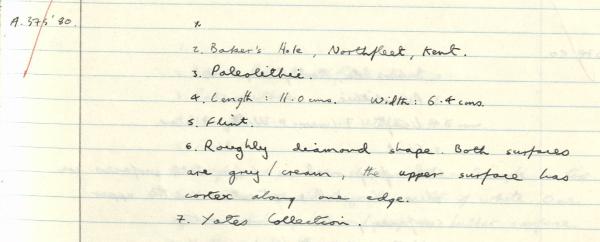 A.375'80.
2. Baker's Hole, Northfleet, Kent.
3. Paleolithic.
4. Length: 11.0 cms. Width: 6.4 cms.
5. Flint.
6. Roughly diamond shape. Both surfaces
are grey/cream, the upper surface has
cortex along one edge.
7. Yates Collection.